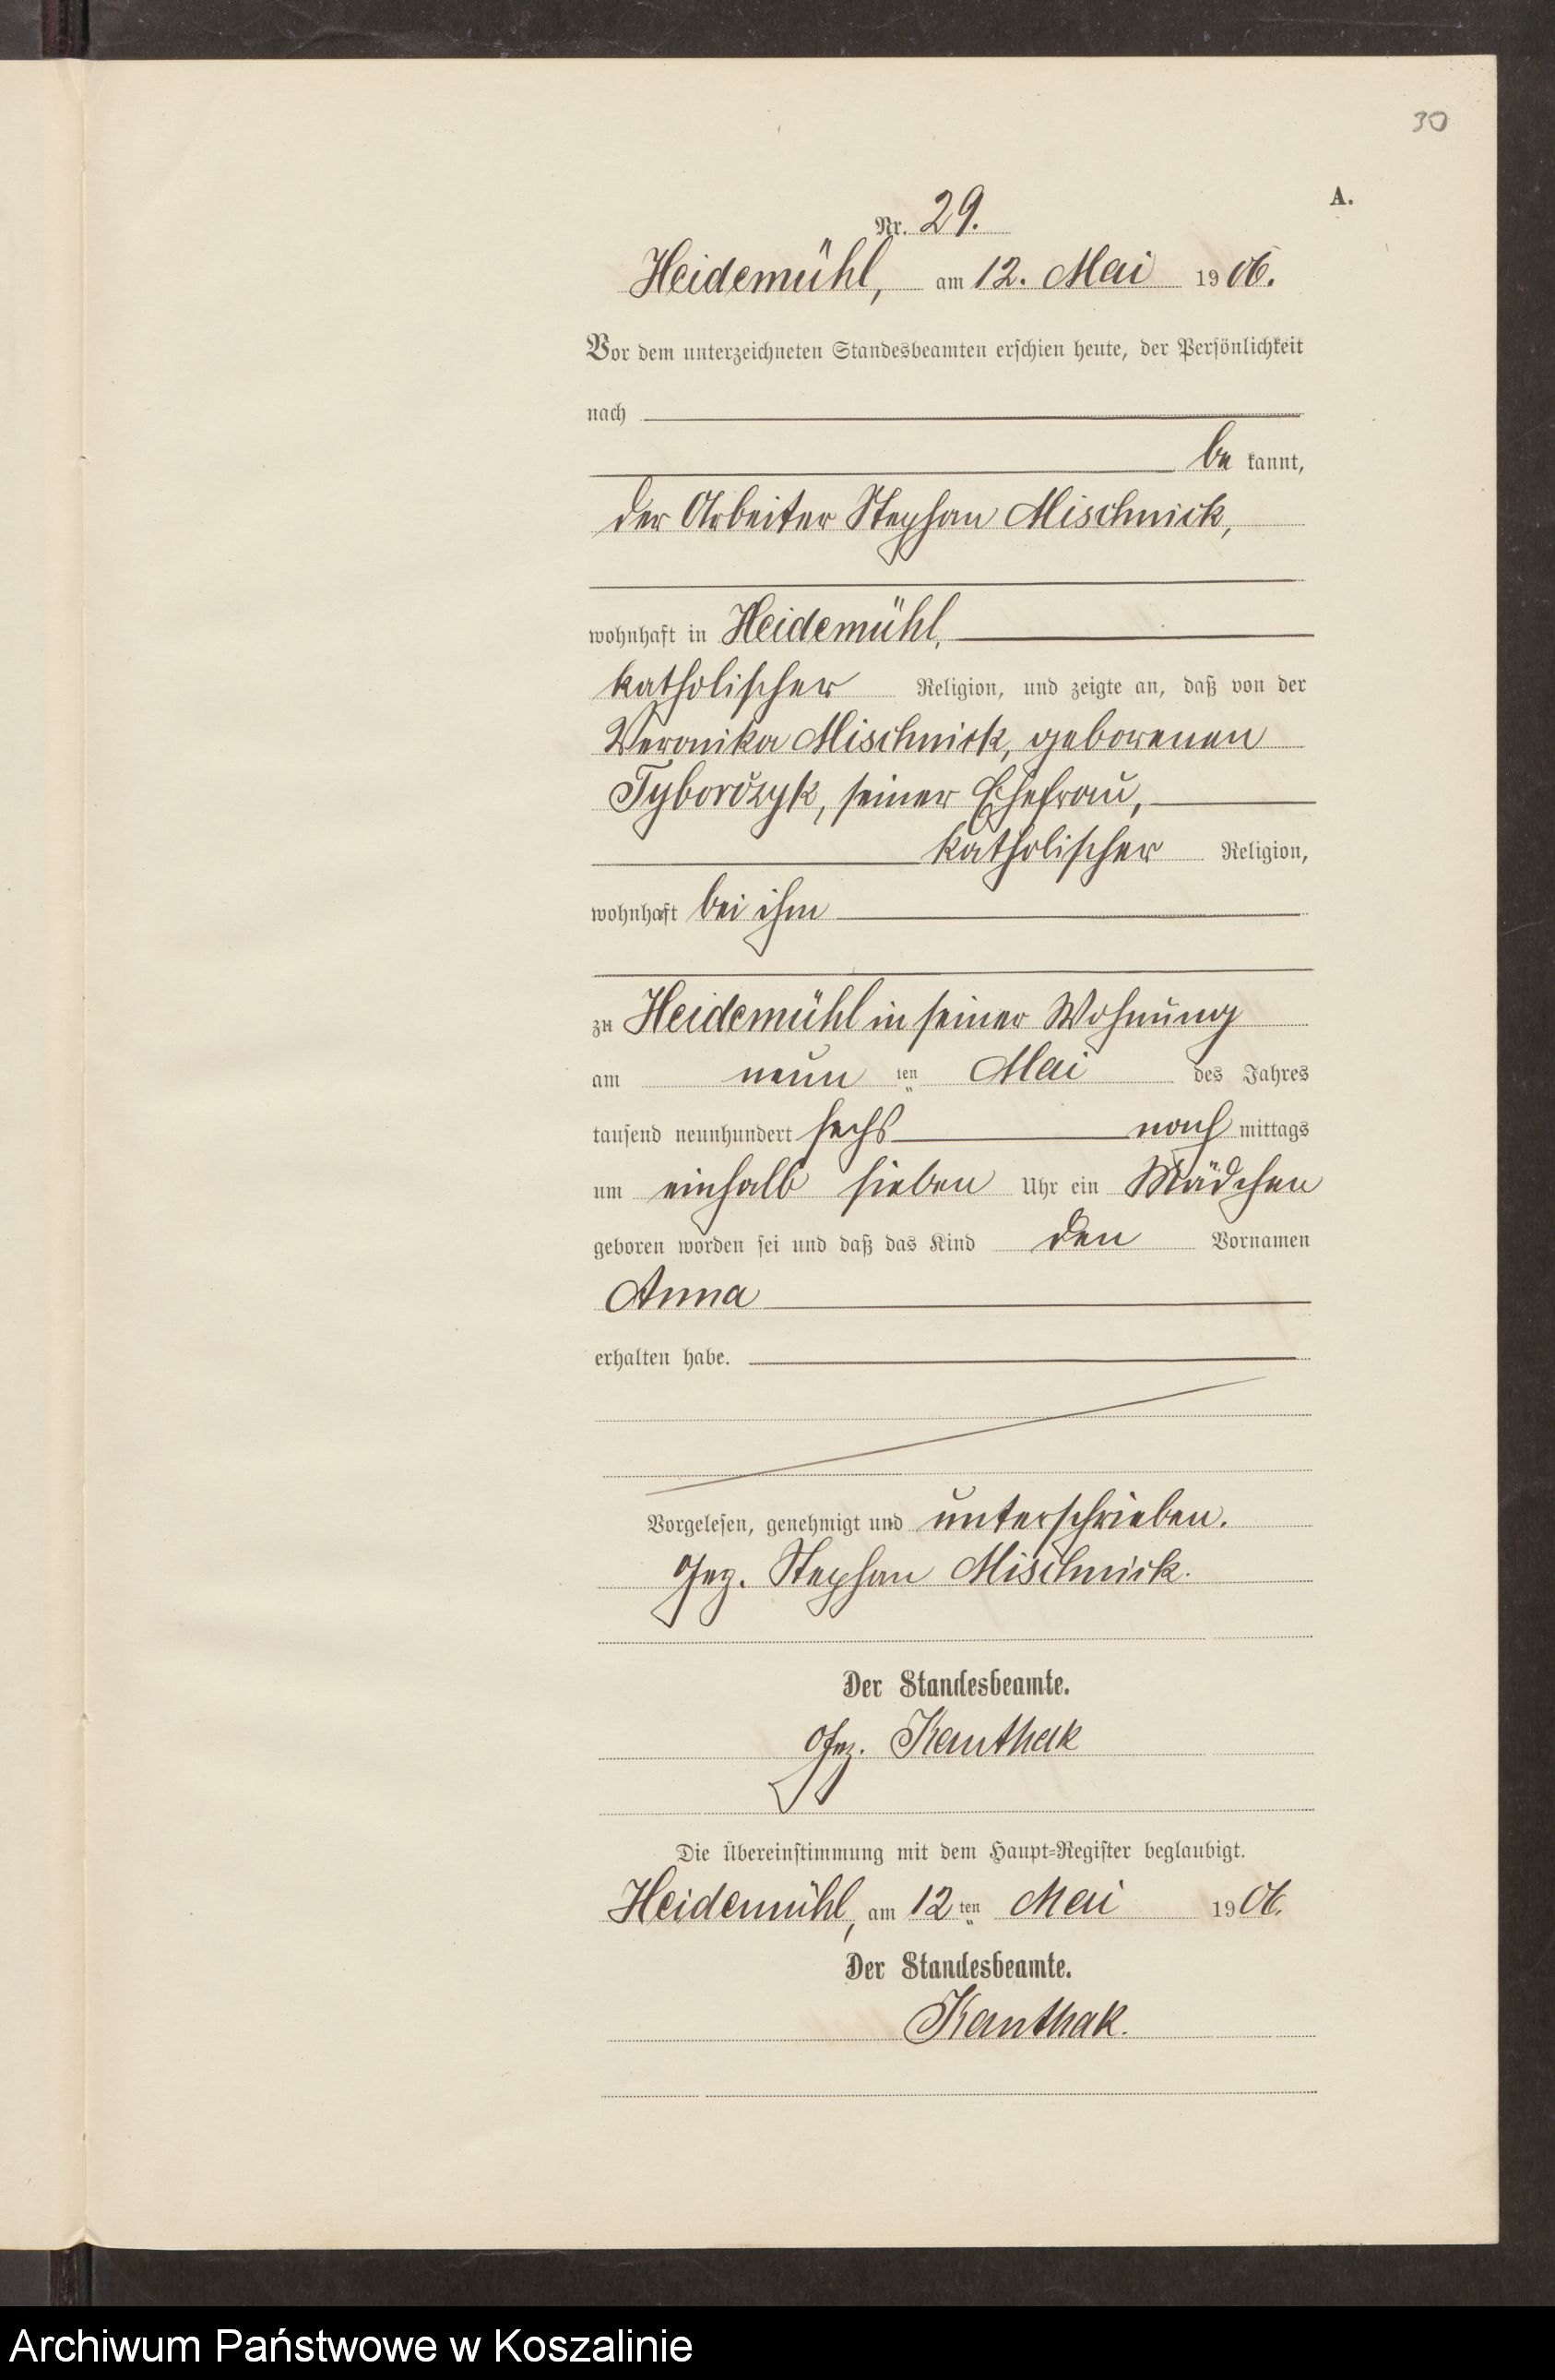 30
A.
Nr. 29.
Heidemühl, am 12. Mai 1906.
Vor dem unterzeichneten Standesbeamten erschien heute, der Persönlichkeit
nach
be kannt,
der Arbeiter Stephan Mischnick,
wohnhaft in Heidemühl,
katholischer Religion, und zeigte an, daß von der
Veronika Mischnick, geborenen
Tyborczyk, seiner Ehefrau,
katholischer Religion,
wohnhaft bei ihm
zu Heidemühl in seiner Wohnung
am neun ten Mai des Jahres
tausend neunhundert sechs nach mittags
um einhalb sieben Uhr ein Mädchen
geboren worden sei und daß das Kind den Vornamen
Anna
erhalten habe.
Vorgelesen, genehmigt und unterschrieben.
Gez. Stephan Mischnick.
Der Standesbeamte.
Gez. Kanthak
Die Übereinstimmung mit dem Haupt-Register beglaubigt.
Heidemühl, am 12ten Mai 1906.
Der Standesbeamte.
Kanthak.
Archiwum Państwowe w Koszalinie